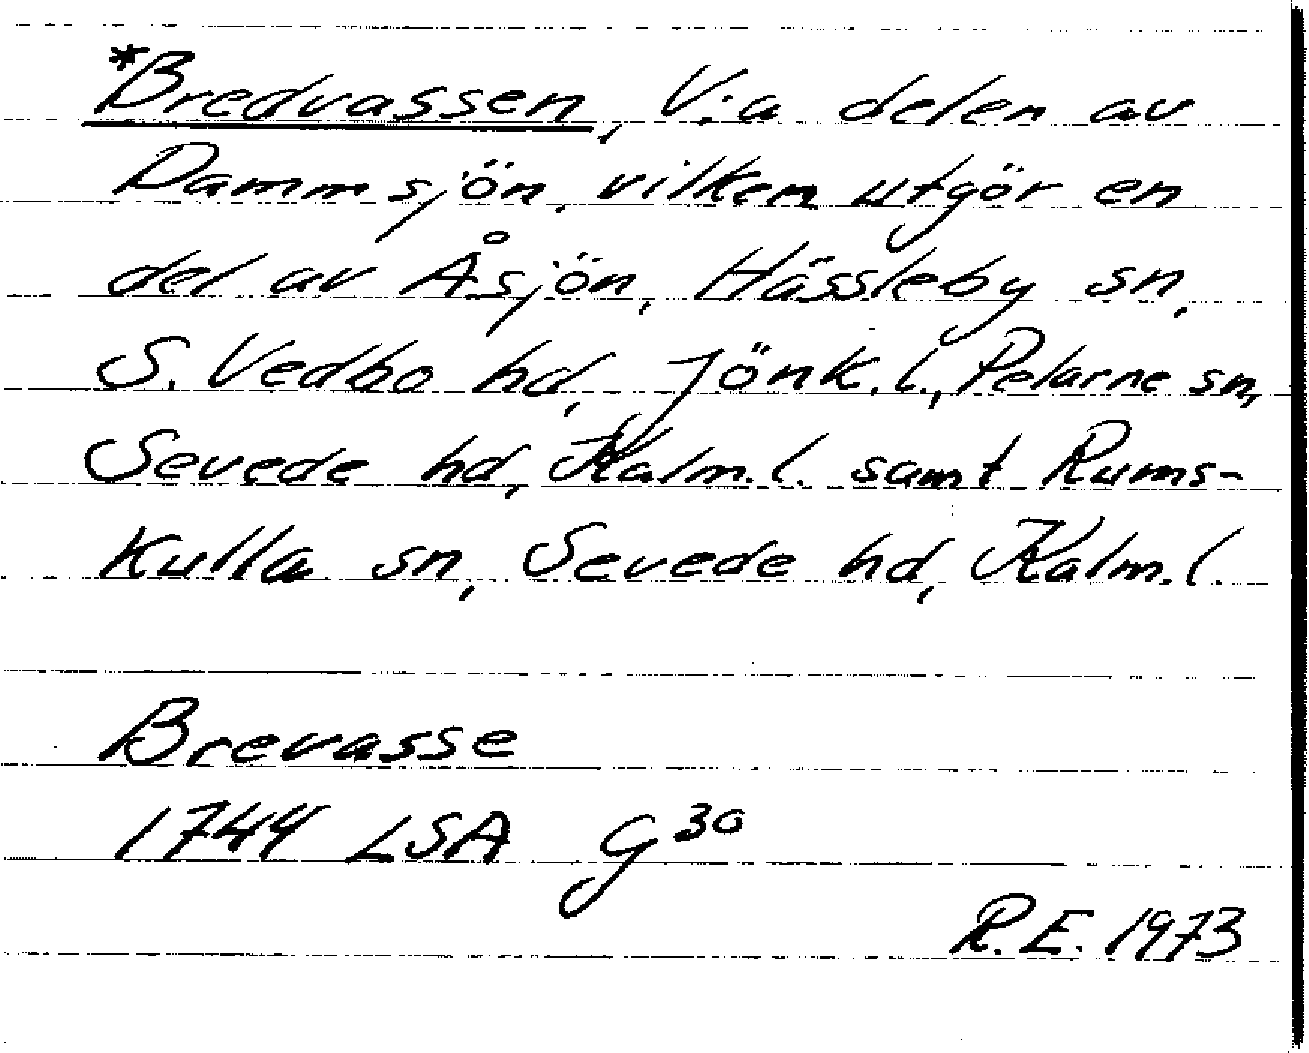 *Bredvassen, V:a delen av
Dammsjön, vilken utgör en
del av Åsjön, Hässleby sn,
S. Vedbo hd, Jönk. l., Pelarne sn,
Sevede hd, Kalm. l. samt Rums-
kulla sn, Sevede hd, Kalm. l.
Brevasse
1744 LSA G 30
R.E. 1973